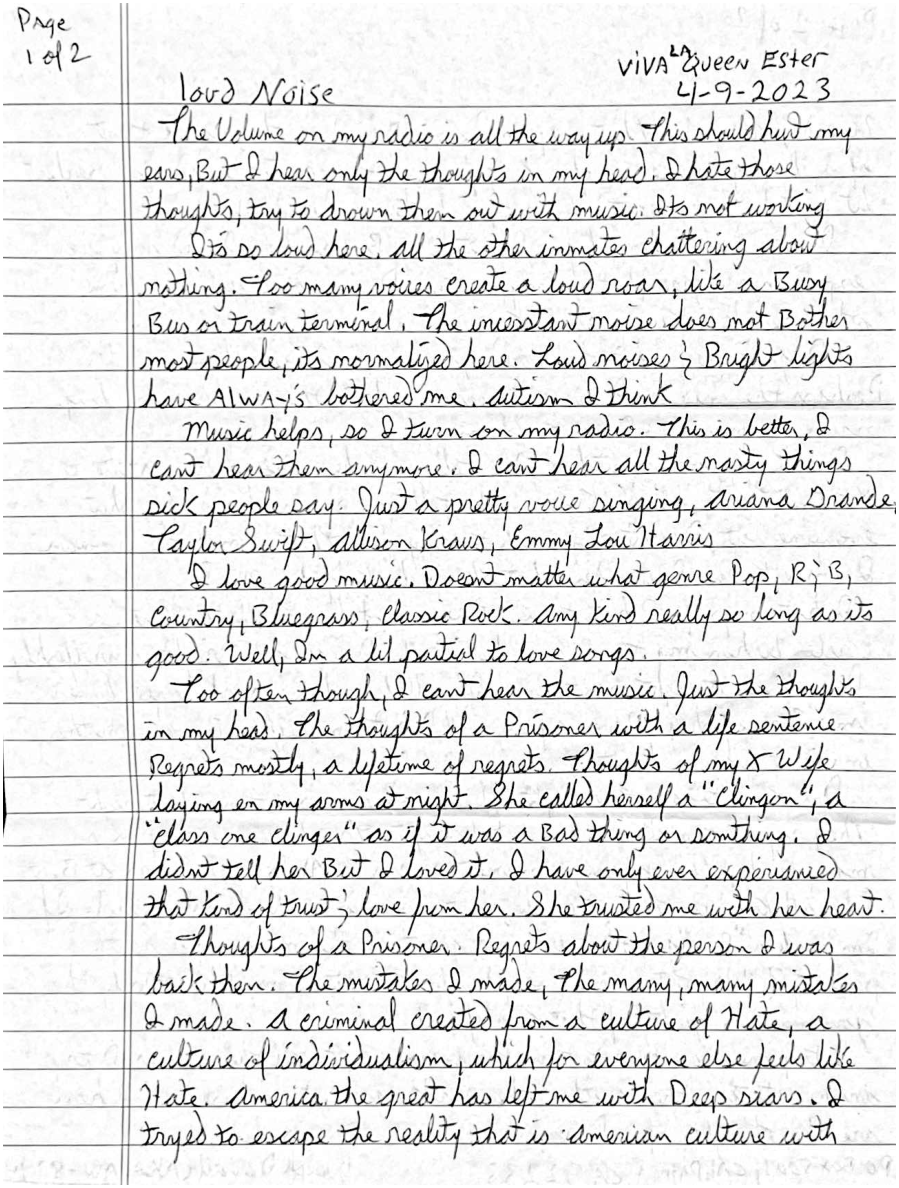 Page
1 of 2
VIVA LA Queen Ester
loud Noise
4-9-2023
The Volume on my radio is all the way up. This should hurt my
ears, But I hear only the thoughts in my head. I hate those
thoughts, try to drown them out with music. Its not working
Its so loud here, all the other inmates chattering about
nothing. Too many voices create a loud roar, like a Busy
Bus or train terminal. The incesstant noise does not Bother
most people, its normalized here. Loud noises & Bright lights
have ALWAY'S bothered me. Autism I think
Music helps, so I turn on my radio. This is better, I
cant hear them anymore. I cant hear all the nasty things
sick people say. Just a pretty voice singing, Ariana Grande,
Taylor Swift, Allison Kraus, Emmy Lou Harris
I love good music. Doesnt matter what genre Pop, R & B,
Country, Bluegrass, Classic Rock. Any kind really so long as its
good. Well, Im a lil partial to love songs.
Too often though, I cant hear the music. Just the thoughts
in my head. The thoughts of a Prisoner with a life sentence
Regrets mostly, a lifetime of regrets. Thoughts of my X Wife
laying en my arms at night. She called herself a "Clingon", a
"Class one clinger" as if it was a Bad thing or somthing. I
didnt tell her But I loved it. I have only ever experianced
that kind of trust & love from her. She trusted me with her heart.
Thoughts of a Prisoner. Regrets about the person I was
back then. The mistakes I made, The many, many mistakes
I made. A criminal created from a culture of Hate, a
culture of individualism, which for everyone else feels like
Hate. America the great has left me with Deep scars. I
tryed to escape the reality that is American culture with